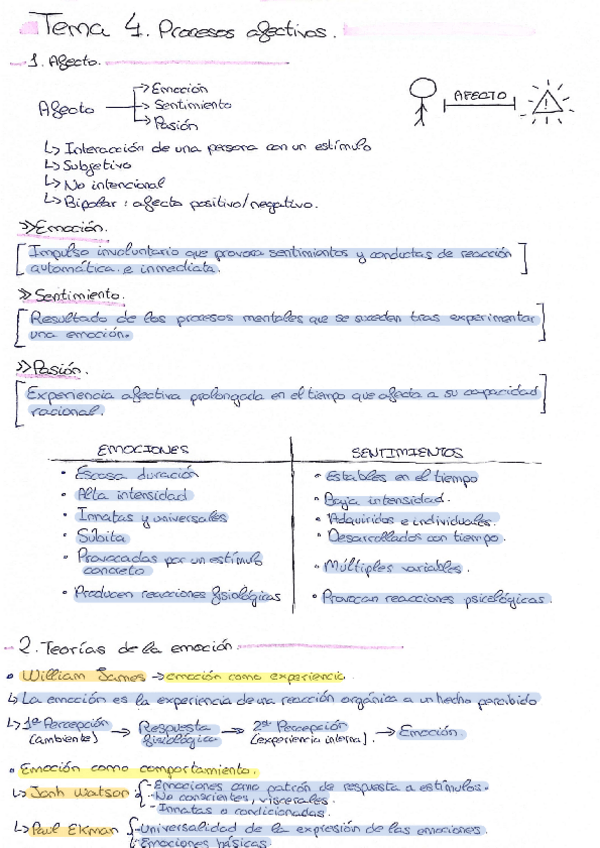 Tema 4. Procesos afectivos.
1. Afecto.
Afecto → Emoción
→ Sentimiento
→ Pasión
AFECTO
!
↳ Interacción de una persona con un estímulo
↳ Subjetivo
↳ No intencional
↳ Bipolar: afecto positivo/negativo.
>> Emoción.
[Impulso involuntario que provoca sentimientos y conductas de reacción
automática e inmediata.]
>> Sentimiento.
[Resultado de los procesos mentales que se suceden tras experimentar
una emoción.]
>> Pasión.
[Experiencia afectiva prolongada en el tiempo que afecta a su capacidad
racional.]
EMOCIONES
• Escasa duración
• Alta intensidad
• Innatas y universales
• Súbita
• Provocadas por un estímulo
concreto
• Producen reacciones fisiológicas
SENTIMIENTOS
• Estables en el tiempo
• Baja intensidad.
• Adquiridos e individuales.
• Desarrollados con tiempo.
• Múltiples variables.
• Provocan reacciones psicológicas.
2. Teorías de la emoción.
• William James → emoción como experiencia.
↳ La emoción es la experiencia de una reacción orgánica a un hecho percibido
↳ 1ª Percepción (ambiente) → Respuesta fisiológica → 2ª Percepción (experiencia interna). → Emoción
• Emoción como comportamiento.
↳ Jonh Watson: - Emociones como patrón de respuesta a estímulos.
- No conscientes, viscerales.
- Innatas o condicionadas.
↳ Paul Ekman - Universalidad de la expresión de las emociones.
- Emociones básicas.